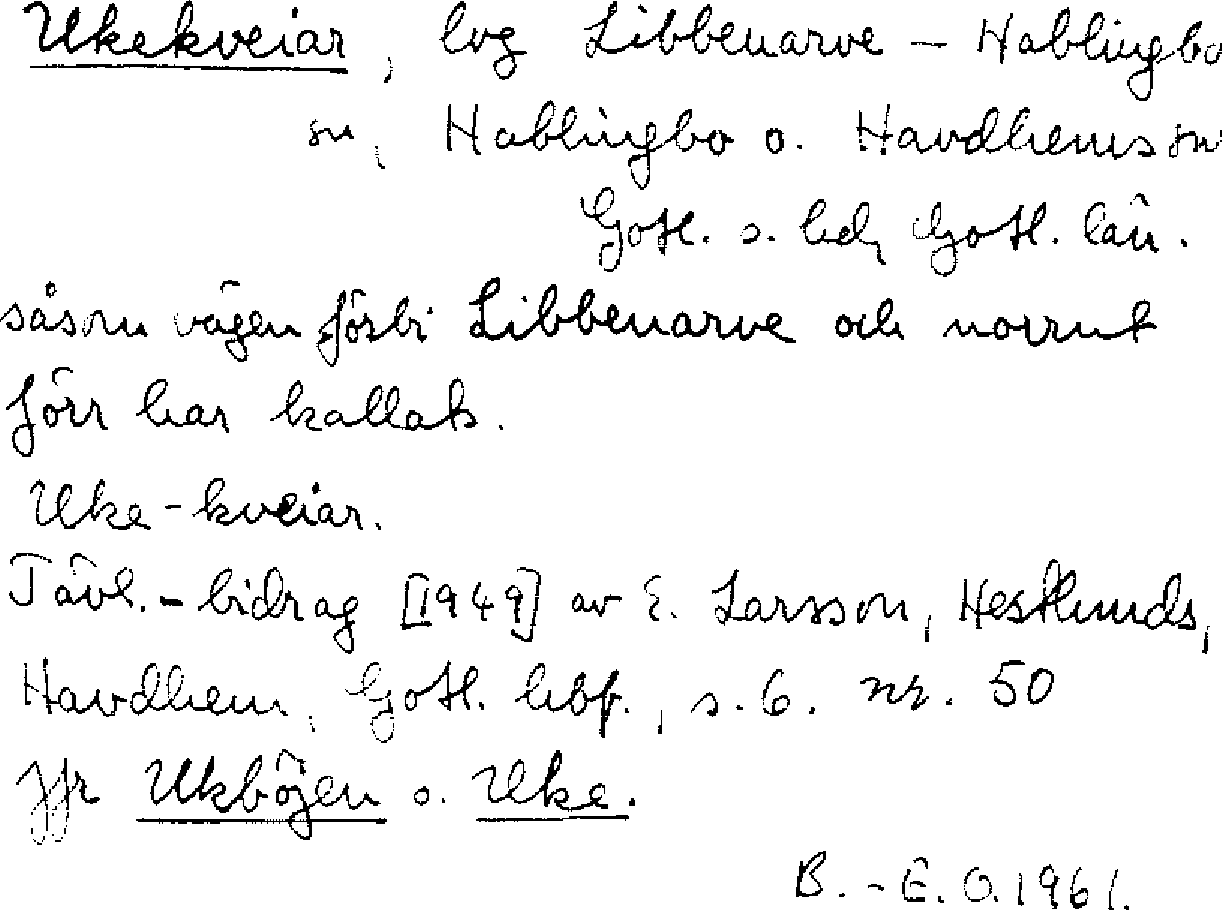 Ukekveiar, lvg Libbenarve - Hablingbo
sn, Hablingbo o. Havdhems sn
Gotl. s. hd, Gotl. län.
såsom vägen förbi Libbenarve och norrut
förr har kallats.
Uke-kveiar.
Tävl.-bidrag [1949] av E. Larsson, Hestlunds,
Havdhem, Gotl. hbf., s. 6. nr. 50
Jfr Ukböjen o. Uke.
B.-E. O. 1961.